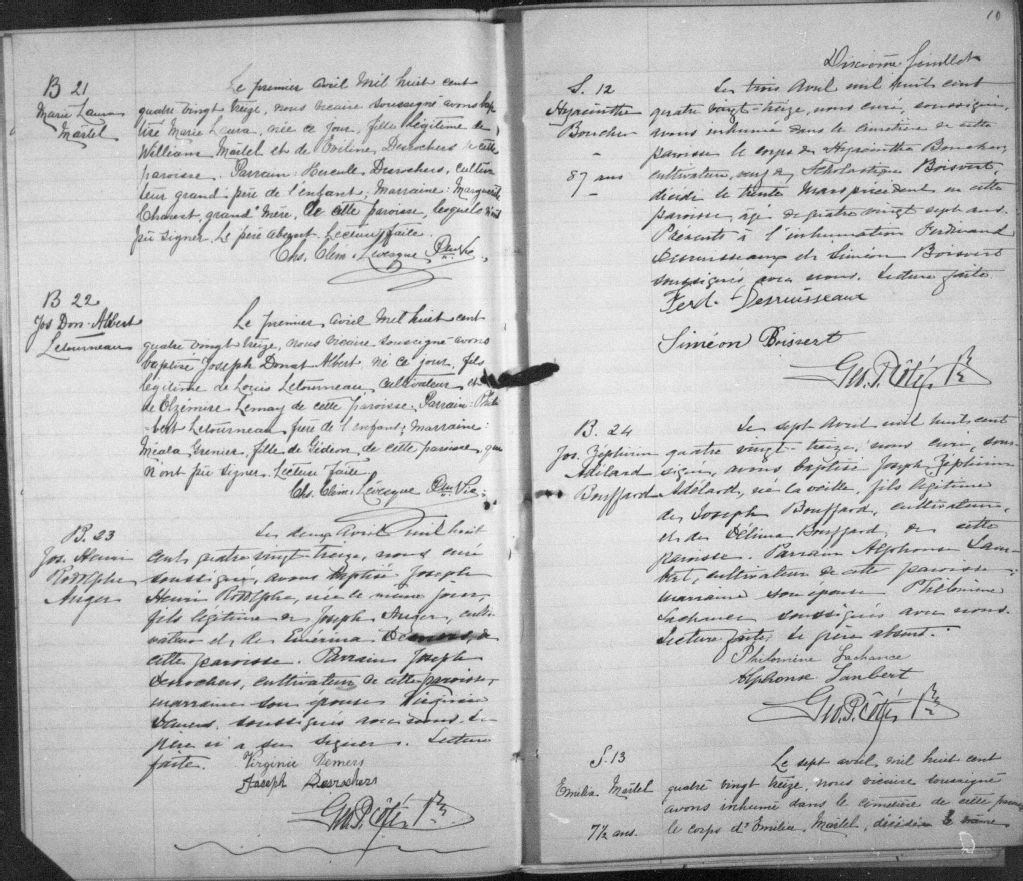 B 21
Marie Laura
Martel
Le premier avril Mil huit cent
quatre vingt treize, nous vicaire soussigné avons bap
tisé Marie Laura, née ce jour, fille légitime de
William Martel et de Desrochers de cette
paroisse. Parrain: Hercule Desrochers, cultiva
teur grand'père de l'enfant, Marraine: Marguerite
Chouest, grand'mère, de cette paroisse, lesquels n'ont
pu signer. Le père absent. Lecture faite.
Chs. Clém. Lévesque Ptre Vic.
B 22
Jos Don. Albert
Letourneau
Le premier avril Mil huit cent
quatre vingt treize, nous vicaire soussigné avons
baptisé Joseph Donat Albert né ce jour, fils
légitime de Louis Letourneau, cultivateur et
de Elzémire Lemay de cette paroisse. Parrain: Phili
bert Letourneau, père de l'enfant; marraine:
Grenier, fille de Gédéon, de cette paroisse, qui
n'ont pu signer. Lecture faite.
Chs. Clém. Lévesque Ptre Vic.
B. 23
Jos. Henri
Rodolphe
Auger
Le deux Avril mil huit
cent quatre vingt treize, nous curé
soussigné, avons baptisé Joseph
Henri Rodolphe, né le même jour,
fils légitime de Joseph Auger, culti-
vateur et de Emérina de
cette paroisse. Parrain Joseph
Desrochers, cultivateur de cette paroisse,
marraine son épouse Virginie
Demers, soussignés avec nous. Le
père n'a su signer. Lecture
faite. Virginie Demers
Joseph Desrochers
Geo. P. Côté, Ptre
10
Dixième feuillet
S. 12
Hyacinthe
Boucher
-
87 ans
-
Le trois Avril mil huit cent
quatre vingt-treize, nous curé soussigné,
avons inhumé dans le cimetière de cette
paroisse le corps de Hyacinthe Boucher,
cultivateur, veuf de Scholastique Boisvert,
décédé le trente Mars précédent en cette
paroisse, âgé de quatre vingt sept ans.
Présents à l'inhumation Ferdinand
Desruisseaux et Siméon Boisvert
soussignés avec nous. Lecture faite
Ferd. Desruisseaux
Siméon Boisvert
Geo. P. Côté, Ptre
B. 24
Jos. Zéphirin
Adélard
Bouffard
Le sept Avril mil huit cent
quatre vingt-treize, nous curé, sous-
signé, avons baptisé Joseph Zéphirin
Adélard, né la veille, fils légitime
de Joseph Bouffard, cultivateur,
et de Délima Bouffard, de cette
paroisse. Parrain Alphonse Lam-
bert, cultivateur de cette paroisse
marraine son épouse Philomène
Lachance soussignés avec nous.
Lecture faite, le père absent.
Philomène Lachance
Alphonse Lambert
Geo. P. Côté, Ptre
S. 13
Emilia Martel
7½ ans.
Le sept avril, mil huit cent
quatre vingt treize, nous vicaire soussigné
avons inhumé dans le cimetière de cette paroisse
le corps d'Emilia Martel, décédée